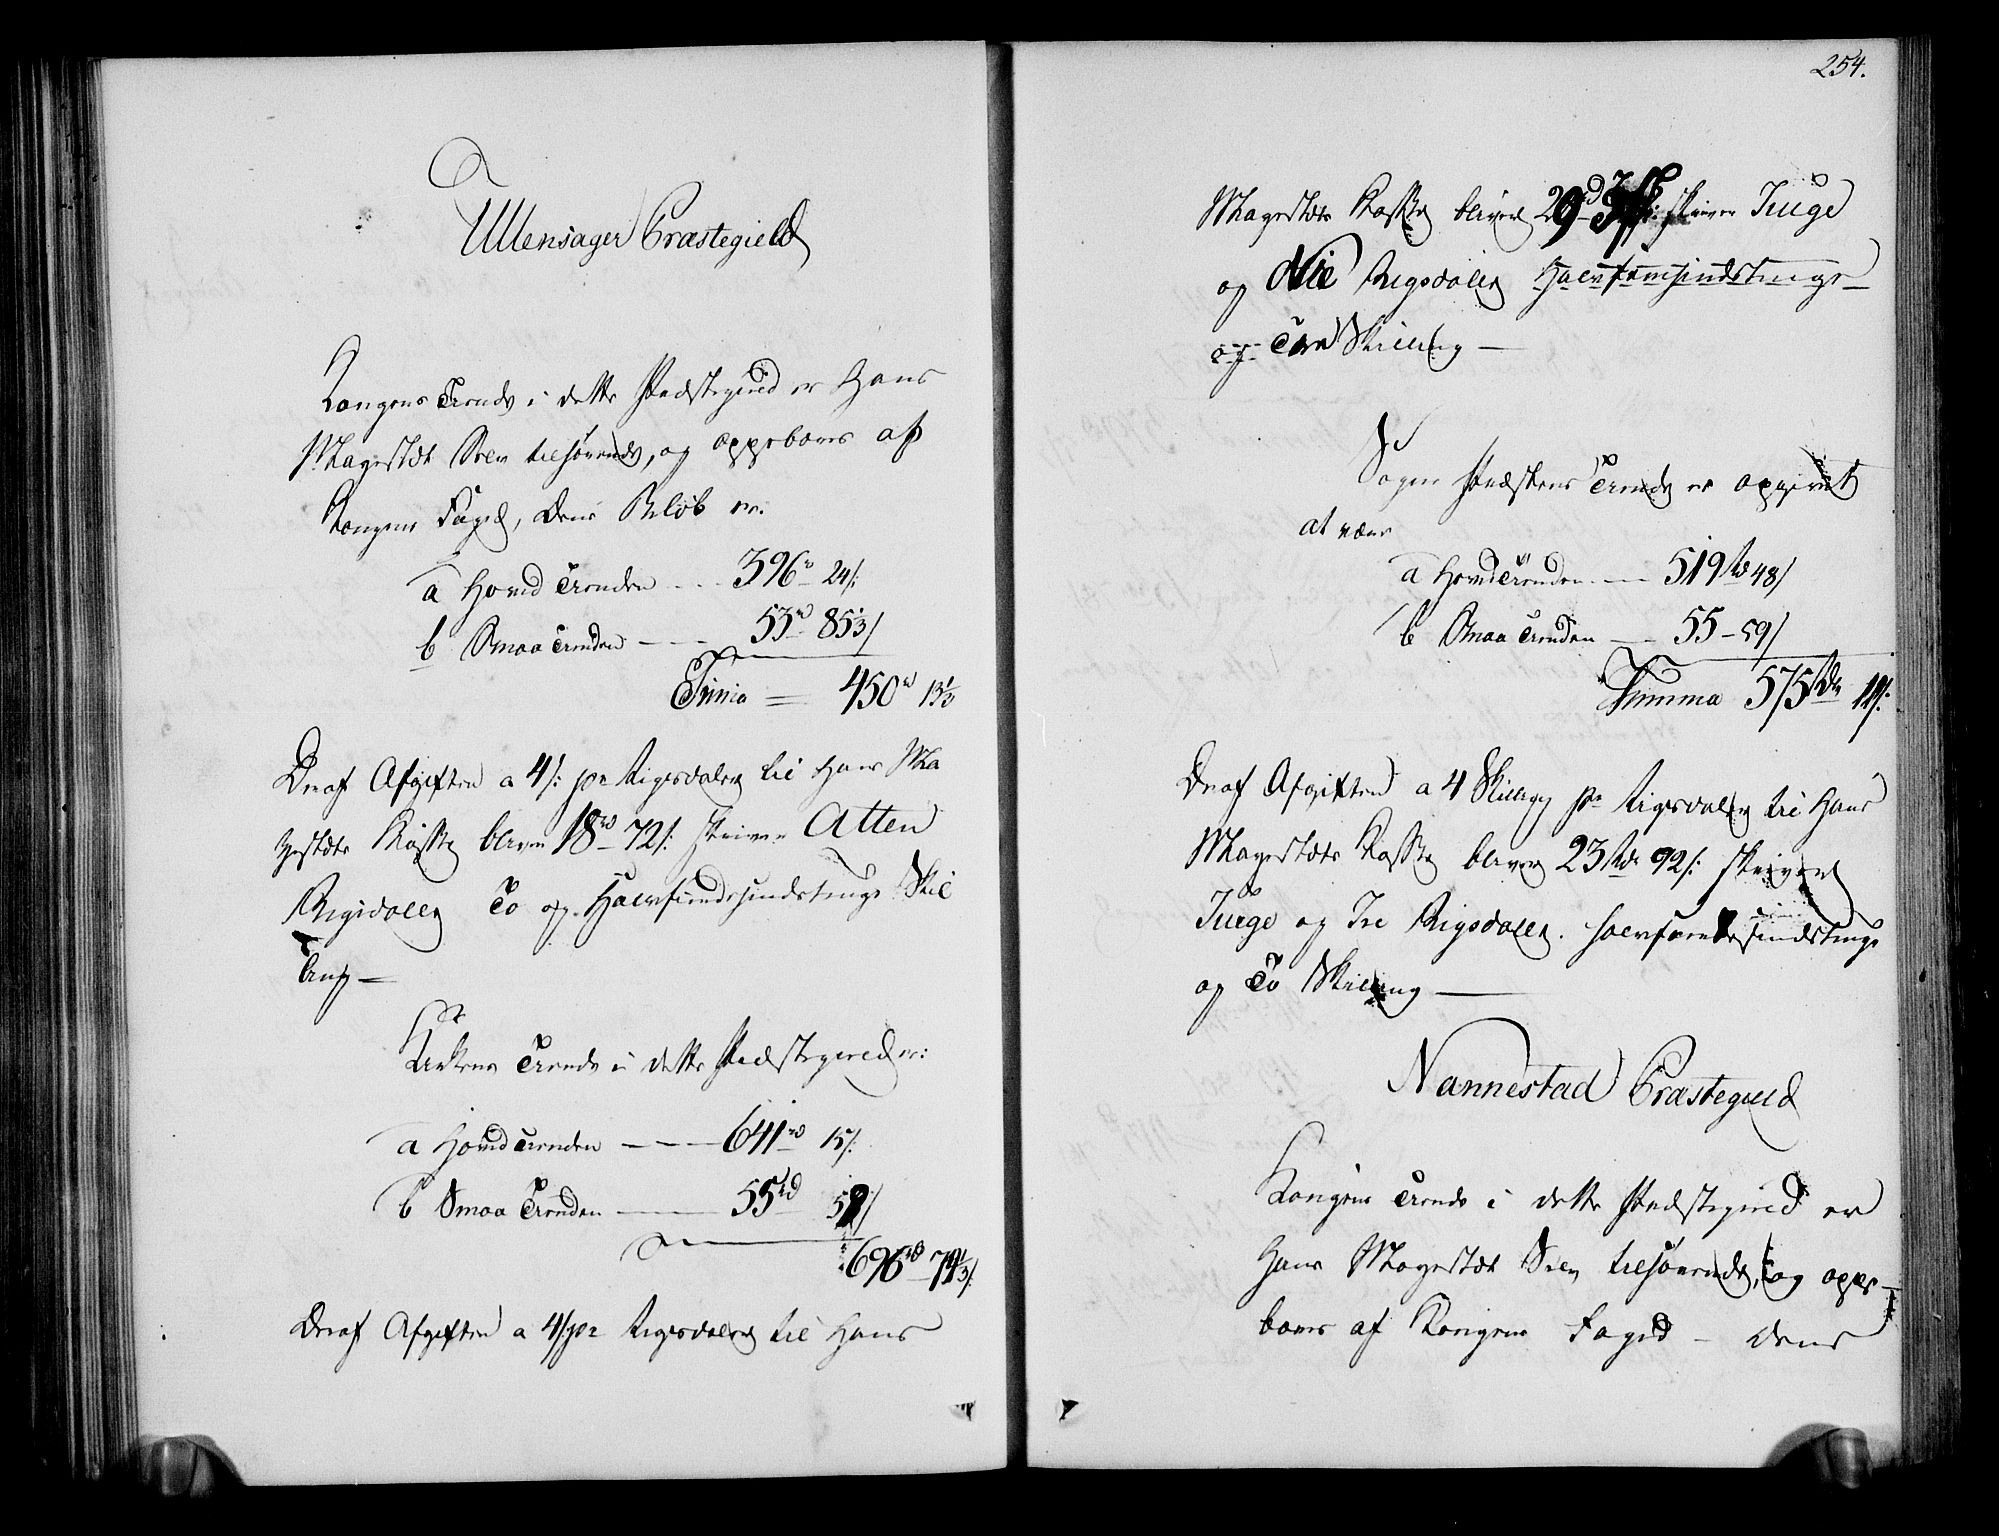 Ullensager Præstegield
Kongens Tiende i dette Præstegield er Hans
Mayestæt Selv tilhørende, og oppebæres af
Kongens Foged, dens Beløb er:
a Hoved Tienden - - - 396 rd 24 s:
b Smaa Tienden - - - 53 rd 85 1/3 s
Summa = 450 rd 13 1/3
Deraf Afgiften a 4 s: pr Rigsdaler til Hans Ma
yestæts Kasse bliver 18 rd 72 s: skriver Atten
Rigsdaler To og Halvfierdesindstiuge Skil
ling —
Kirkens Tiende i dette Præstegield er:
a Hoved Tienden - - - 641 rd 15 s:
b Smaa Tienden - - - 55 rd
696 rd
Deraf Afgiften a 4 s pr Rigsdaler til Hans
254.
Mayestæts Kasse bliver 29 rd skriver Tiuge
og Nie Rigsdaler Halvfemsindstiuge
og Skilling —
Sogne Præstens Tiende er opgivet
at være
a Hoved Tienden - - - 519 rd 48 s
b Smaa Tienden — 55 - 59 s
Summa 575 rdr 11 s:
Deraf Afgiften a 4 Skilling pr Rigsdaler til Hans
Mayestæts Kasse bliver 23 rdr 92 s: skriver
Tiuge og Tre Rigsdaler. halvfemtesindstiuge
og To Skilling —
Nannestad Præstegield
Kongens Tiende i dette Præstegield er
Hans Mayestæt Selv tilhørende, og oppe-
bæres af Kongens Foged - dens